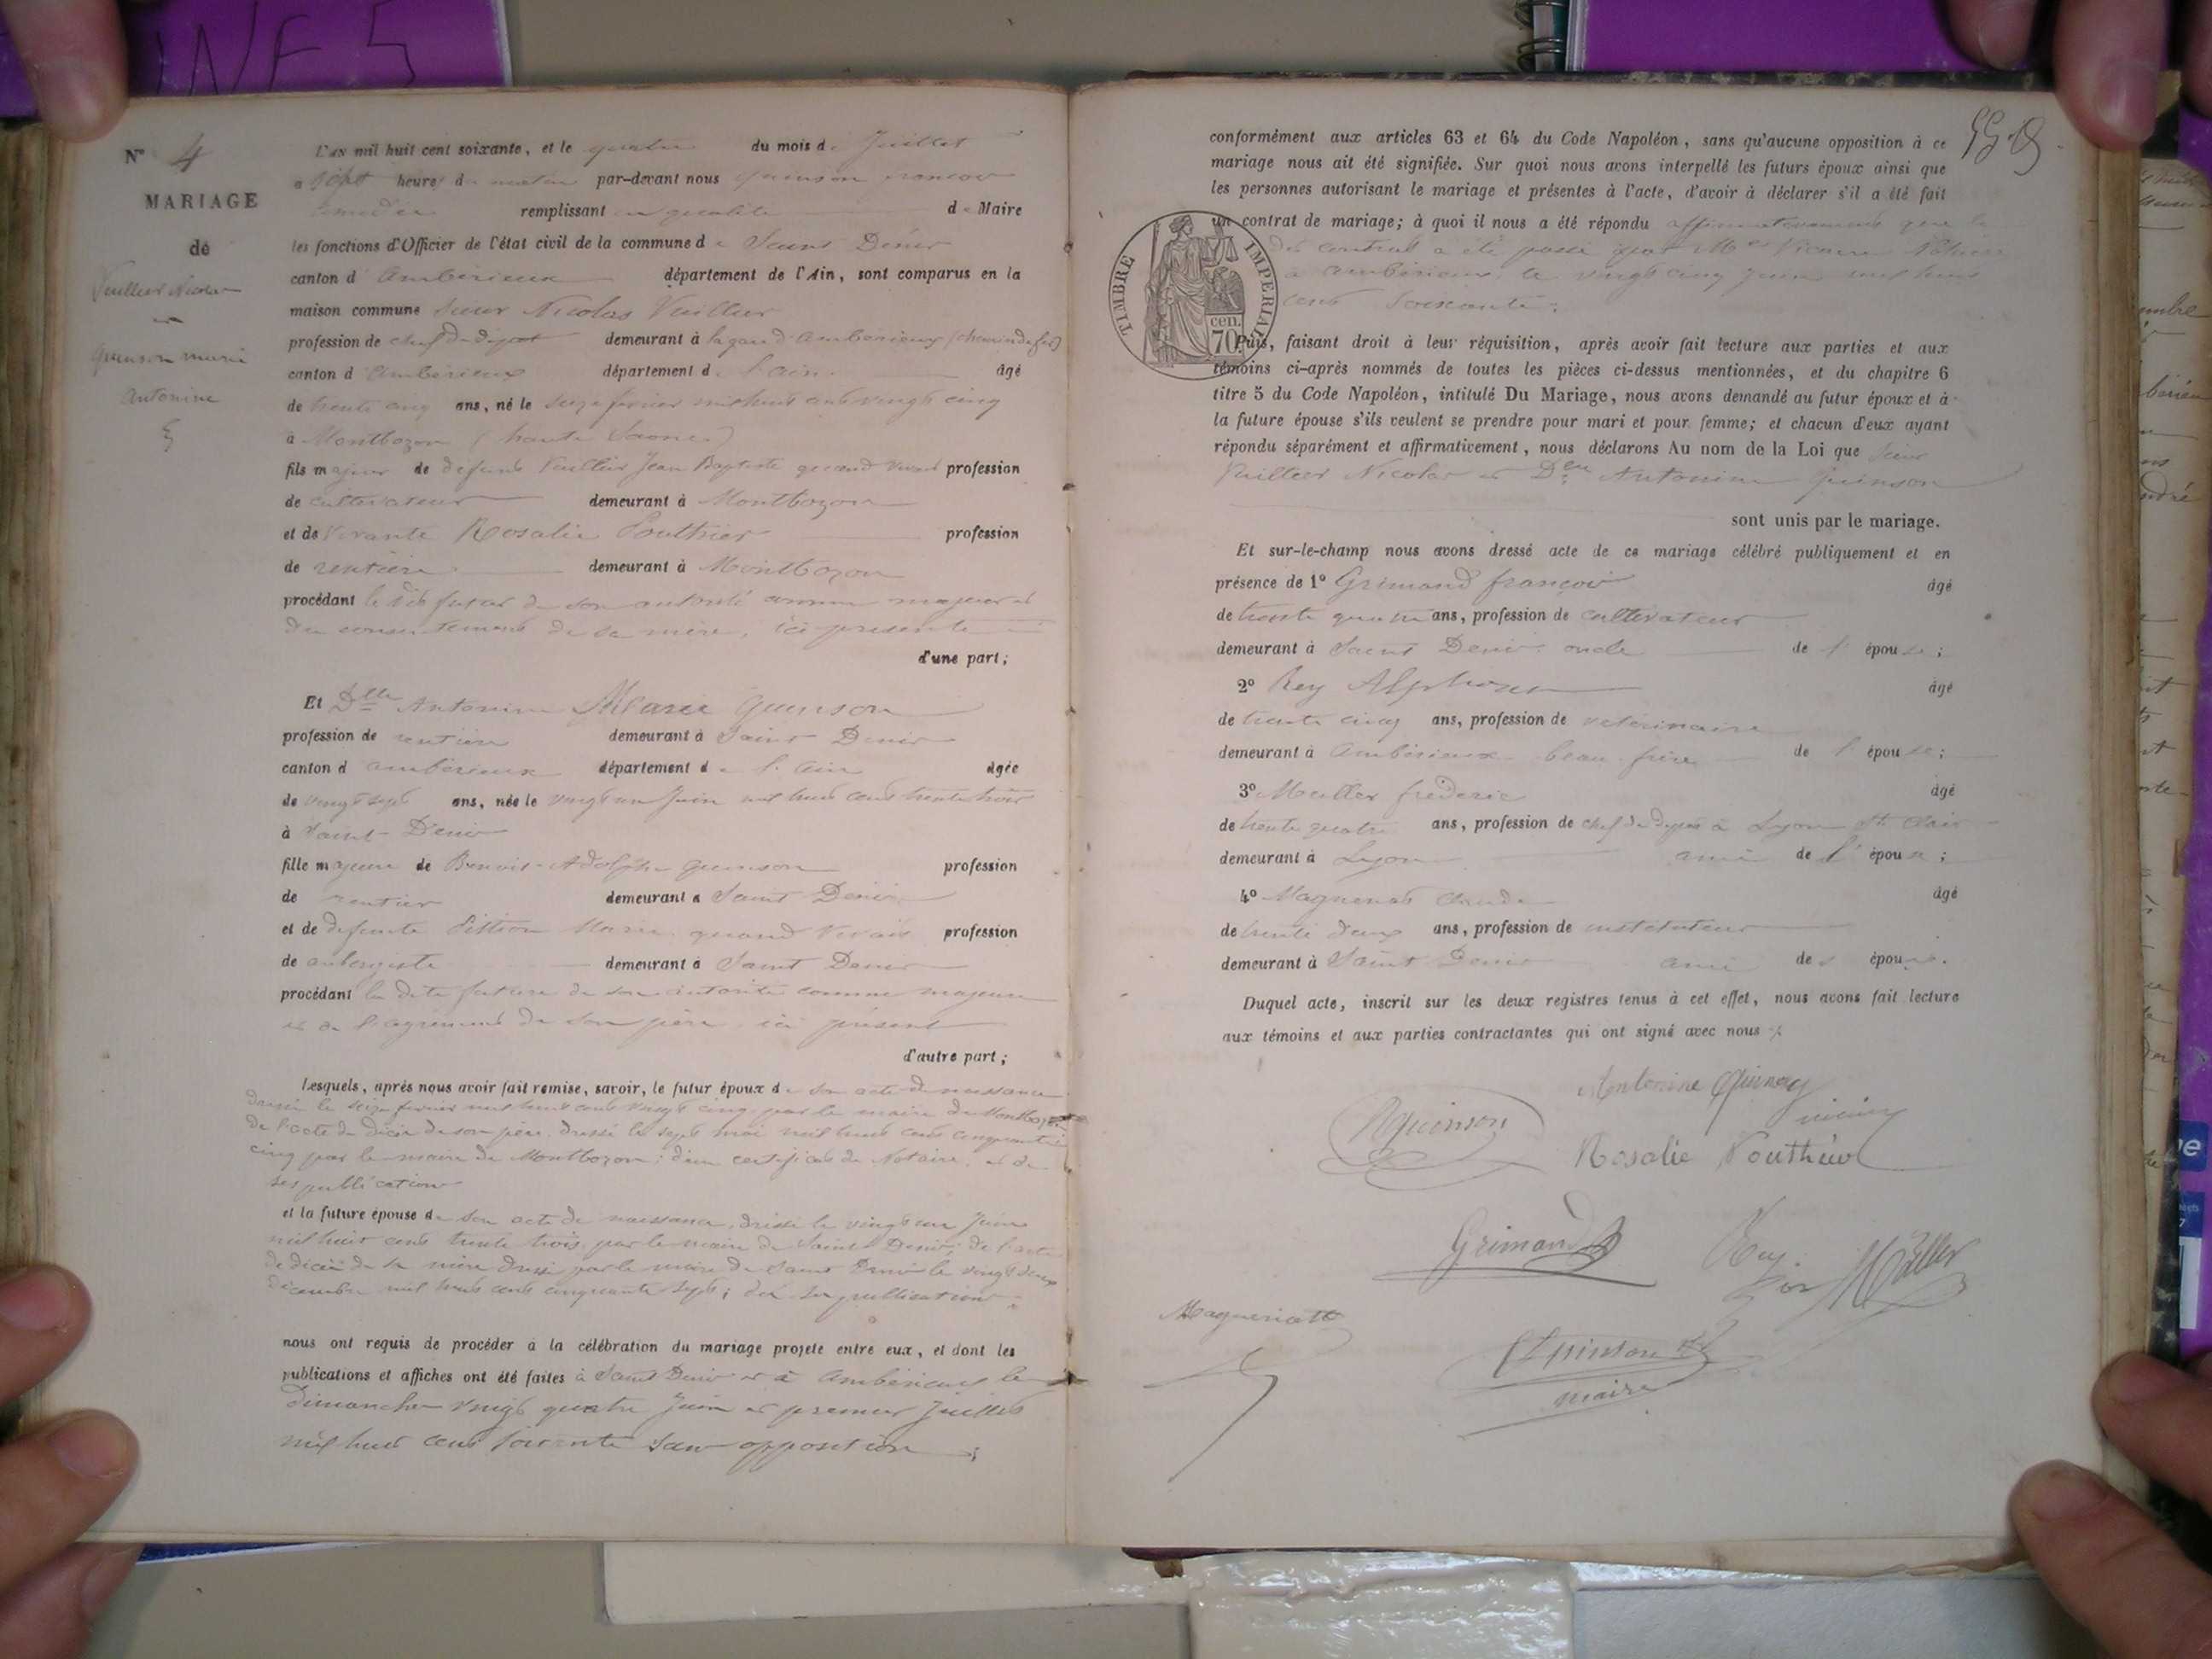 INF 5
N° 4
MARIAGE
de
Vuillier Nicolas
et
Quinson marie
antonine
L'AN mil huit cent soixante, et le quatre du mois de Juillet
a sept heures du matin par-devant nous Quinson françois
remplissant en qualité de Maire
les fonctions d'Officier de l'état civil de la commune de Saint Denis
canton d'ambérieux département de l'Ain, sont comparus en la
maison commune sieur Nicolas Vuillier
profession de chef de dépot demeurant à la gare d'ambérieux (chemin de fer)
canton d'ambérieux département de l'ain âgé
de trente cinq ans, né le seize février mil huit cent vingt cinq
à Montbozon (haute Saone)
fils majeur de défunt Vuillier Jean Baptiste quand vivait profession
de cultivateur demeurant à Montbozon
et de vivante Rosalie Pouthier profession
de rentière demeurant à Montbozon
procédant le dit futur de son autorité comme majeur et
du consentement de sa mère, ici présente
d'une part;
Et Dlle Antonine Marie Quinson
profession de rentière demeurant à Saint Denis
canton d'ambérieux département de l'Ain âgée
de vingt sept ans, née le vingt un Juin mil huit cent trente trois
à Saint Denis
fille majeure de Benoit-Adolphe Quinson profession
de rentier demeurant à Saint Denis
et de défunte Marie quand vivait profession
de aubergiste demeurant à Saint Denis
procédant la dite future de son autorité comme majeure
et de l'agrément de son père ici présent
d'autre part;
Lesquels, après nous avoir fait remise, savoir, le futur époux de son acte de naissance
dressé le seize février mil huit cent vingt cinq par le maire de Montbozon
de l'acte de décès de son père dressé le sept mai mil huit cent cinquante
cinq par le maire de Montbozon; d'un certificat de Notaire, et de
ses publications
et la future épouse de son acte de naissance, dressé le vingt un Juin
mil huit cent trente trois par le maire de Saint Denis, de l'acte
de décès de sa mère dressé par le maire de Saint Denis le vingt deux
décembre mil huit cent cinquante sept; de ses publications
nous ont requis de procéder à la célébration du mariage projeté entre eux, et dont les
publications et affiches ont été faites à Saint Denis et à ambérieux le
dimanche vingt quatre Juin et premier Juillet
mil huit cent soixante sans opposition;
conformément aux articles 63 et 64 du Code Napoléon, sans qu'aucune opposition à ce
mariage nous ait été signifiée. Sur quoi nous avons interpellé les futurs époux ainsi que
les personnes autorisant le mariage et présentes à l'acte, d'avoir à déclarer s'il a été fait
un contrat de mariage; à quoi il nous a été répondu affirmativement que le
dit contrat a été passé par Me Vicaire Notaire
à ambérieux, le vingt cinq Juin mil huit
cent soixante.
TIMBRE IMPERIAL
70 cen.
Puis, faisant droit à leur réquisition, après avoir fait lecture aux parties et aux
témoins ci-après nommés de toutes les pièces ci-dessus mentionnées, et du chapitre 6
titre 5 du Code Napoléon, intitulé Du Mariage, nous avons demandé au futur époux et à
la future épouse s'ils veulent se prendre pour mari et pour femme; et chacun d'eux ayant
répondu séparément et affirmativement, nous déclarons Au nom de la Loi que sieur
Vuillier Nicolas et Dlle Antonine Quinson
sont unis par le mariage.
Et sur-le-champ nous avons dressé acte de ce mariage célébré publiquement et en
présence de 1° Grimand françois âgé
de trente quatre ans, profession de cultivateur
demeurant à Saint Denis oncle de l'épouse;
2° Rey Alphonse âgé
de trente cinq ans, profession de vétérinaire
demeurant à Ambérieux beau-frère de l'épouse;
3° Muller frederic âgé
de trente quatre ans, profession de chef de dépot à Lyon St Clair
demeurant à Lyon ami de l'époux;
4° Magnenat Claude âgé
de trente deux ans, profession de instituteur
demeurant à Saint Denis ami de s époux.
Duquel acte, inscrit sur les deux registres tenus à cet effet, nous avons fait lecture
aux témoins et aux parties contractantes qui ont signé avec nous
Antonine Quinson
Quinson
Rosalie Pouthier
Grimand
Rey
Müller
Quinson
maire